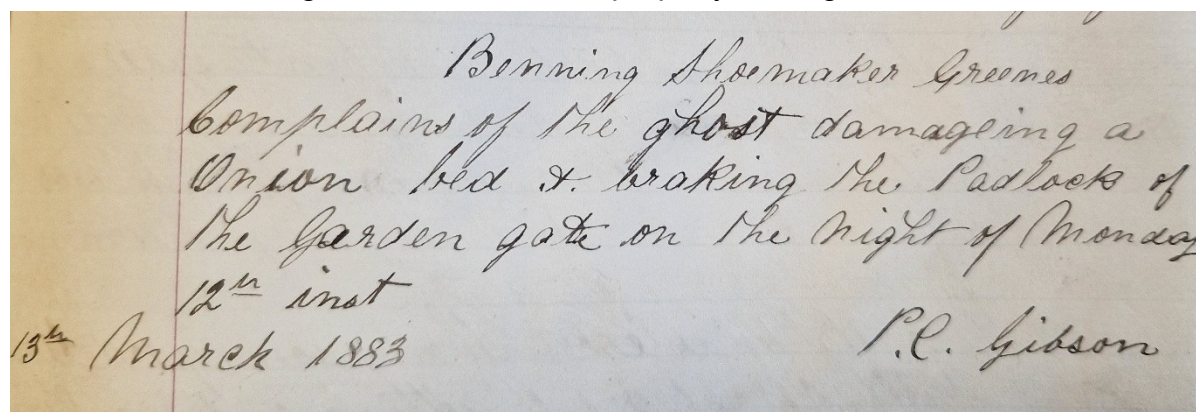 Benning Shoemaker Greenes
Complains of the ghost damageing a
Onion bed &. braking the Padlock of
the Garden gate on the Night of Monday
12th inst
13th March 1883 P.C. Gibson